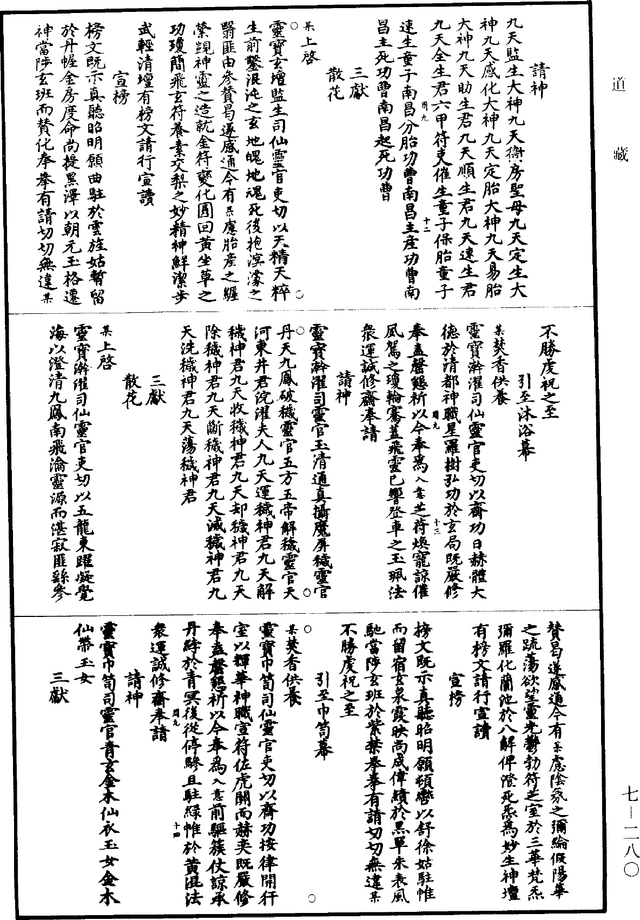 道藏
請神
九天監生大神九天衛房聖母九天定生大
神九天感化大神九天定胎大神九天易胎
大神九天助生君九天順生君九天速生君
九天全生君六甲符吏催生童子保胎童子
速生童子南昌分胎功曹南昌主產功曹南
昌主死功曹南昌起死功曹
三獻
散花
某上啓
靈寶玄壇監生司仙靈官吏切以天精天粹
生前鑿混沌之玄地魄地魂死後抱溟濛之
翳匪由參贊曷遂感通今有某慮胎產之纏
縈覬神靈之造就金符變化圓回黃坐草之
功瓊簡飛玄符養素交梨之妙精神鮮潔步
武輕清壇有榜文請行宣讀
宣榜
榜文既示真聽昭明願曲駐於雲旌姑暫留
於丹幄金房度命尚提黑澤以朝元玉格遷
神當陟玄班而贊化奉拳有請切切無違某
不勝虔祝之至
引至沐浴幕
某焚香供養
靈寶澣濯司仙靈官吏切以齋功日赫體大
德於清都神職星羅樹弘功於玄局既嚴修
奉盍罄懇祈以今奉爲入意芝符煥寵諒催
風駕之瓊輪騫蓋飛靈已響登車之玉珮法
衆運誠修齋奉請
請神
靈寶澣濯司靈官玉清通真攝魔屏穢靈官
丹天九鳳破穢靈官五方五帝解穢靈官天
河東井君浣濯夫人九天運穢神君九天解
穢神君九天收穢神君九天却穢神君九天
除穢神君九天斷穢神君九天滅穢神君九
天洗穢神君九天蕩穢神君
三獻
散花
某上啓
靈寶澣濯司仙靈官吏切以五龍東躍凝覺
海以澄清九鳳南飛瀹靈源而湛寂匪繇參
贊曷遂感通今有某慮陰氛之彌綸假陽華
之疏蕩欲望靈光鬱勃符芝室於三華梵炁
彌羅化蘭池於八解俾澄死炁爲妙生神壇
有榜文請行宣讀
宣榜
榜文既示真聽昭明願頓轡以舒徐姑駐帷
而留宿玄泉霞映尚咸偉績於黑單朱表風
馳當陟玄班於紫禁奉拳有請切切無違某
不勝虔祝之至
引至巾笥幕
某焚香供養
靈寶巾笥司仙靈官吏切以齋功按律開行
室以輝華神職宣符佐虎闈而赫奕既嚴修
奉盍罄懇祈以今奉爲入意前驅簇仗諒承
丹綍於青冥後從停驂且駐綠帷於黃混法
衆運誠修齋奉請
請神
靈寶巾笥司靈官青玄金木仙衣玉女金木
仙帶玉女
三獻
七—二八〇